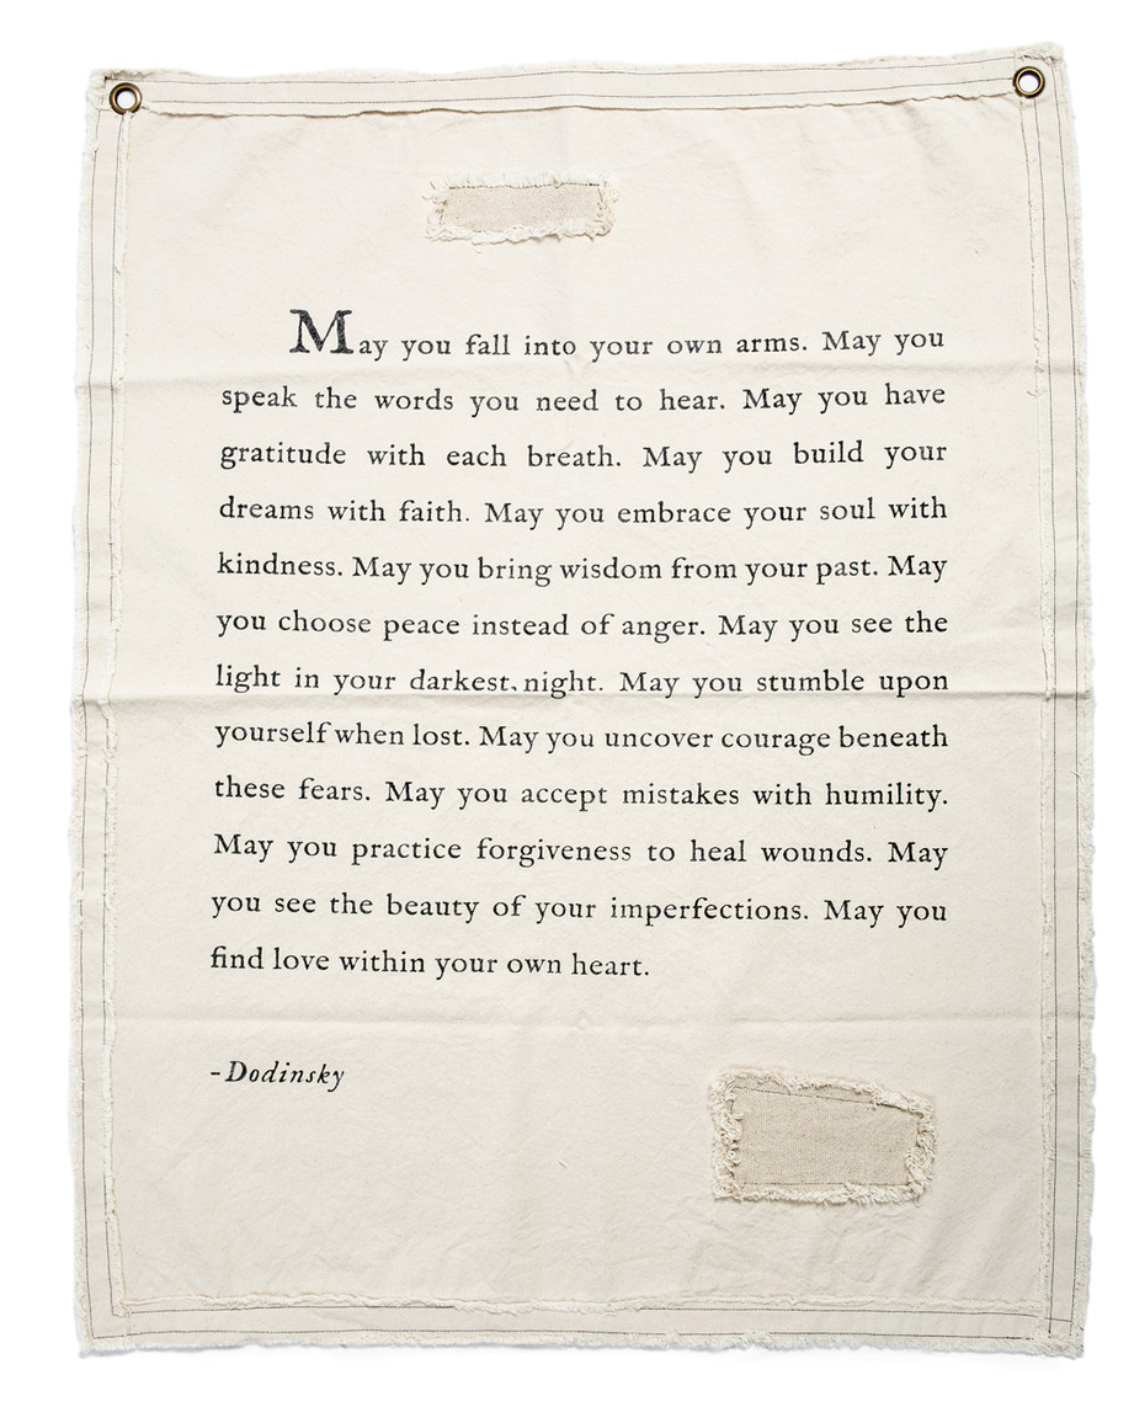 May you fall into your own arms. May you
speak the words you need to hear. May you have
gratitude with each breath. May you build your
dreams with faith. May you embrace your soul with
kindness. May you bring wisdom from your past. May
you choose peace instead of anger. May you see the
light in your darkest night. May you stumble upon
yourself when lost. May you uncover courage beneath
these fears. May you accept mistakes with humility.
May you practice forgiveness to heal wounds. May
you see the beauty of your imperfections. May you
find love within your own heart.
-Dodinsky